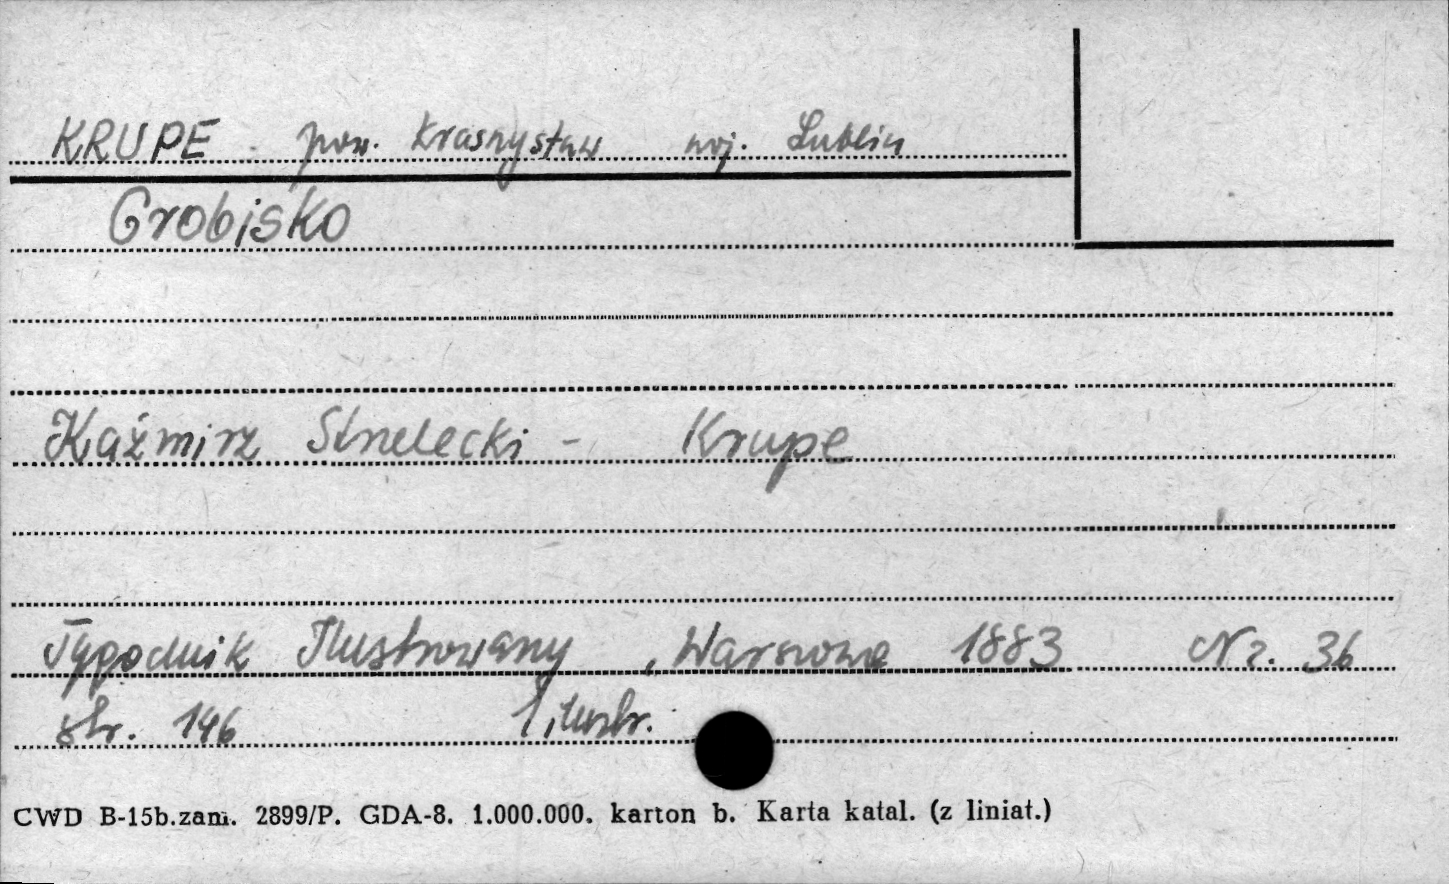 KRUPE pow. Krasnystaw woj. Lublin
Grobisko
Kaźmirz Strzelecki - Krupe
Tygodnik Ilustrowany, Warszawa 1883 Nr. 36
str. 146 1 ilustr.
CWD B-15b.zam. 2899/P. GDA-8. 1.000.000. karton b. Karta katal. (z liniat.)